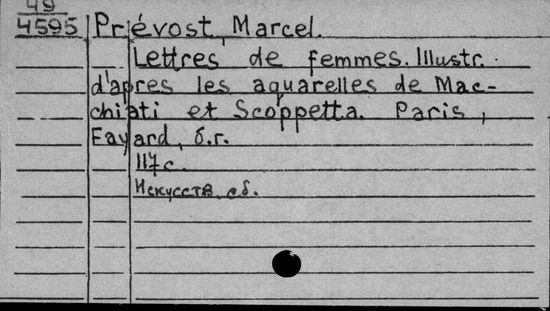 49
4595 Priévost, Marcel.
Lettres de femmes. Illustr.
d'apres les aquarelles de Mac-
chiati et Scoppetta. Paris,
Fayard, б.г.
117 с.
Искусств. сб.